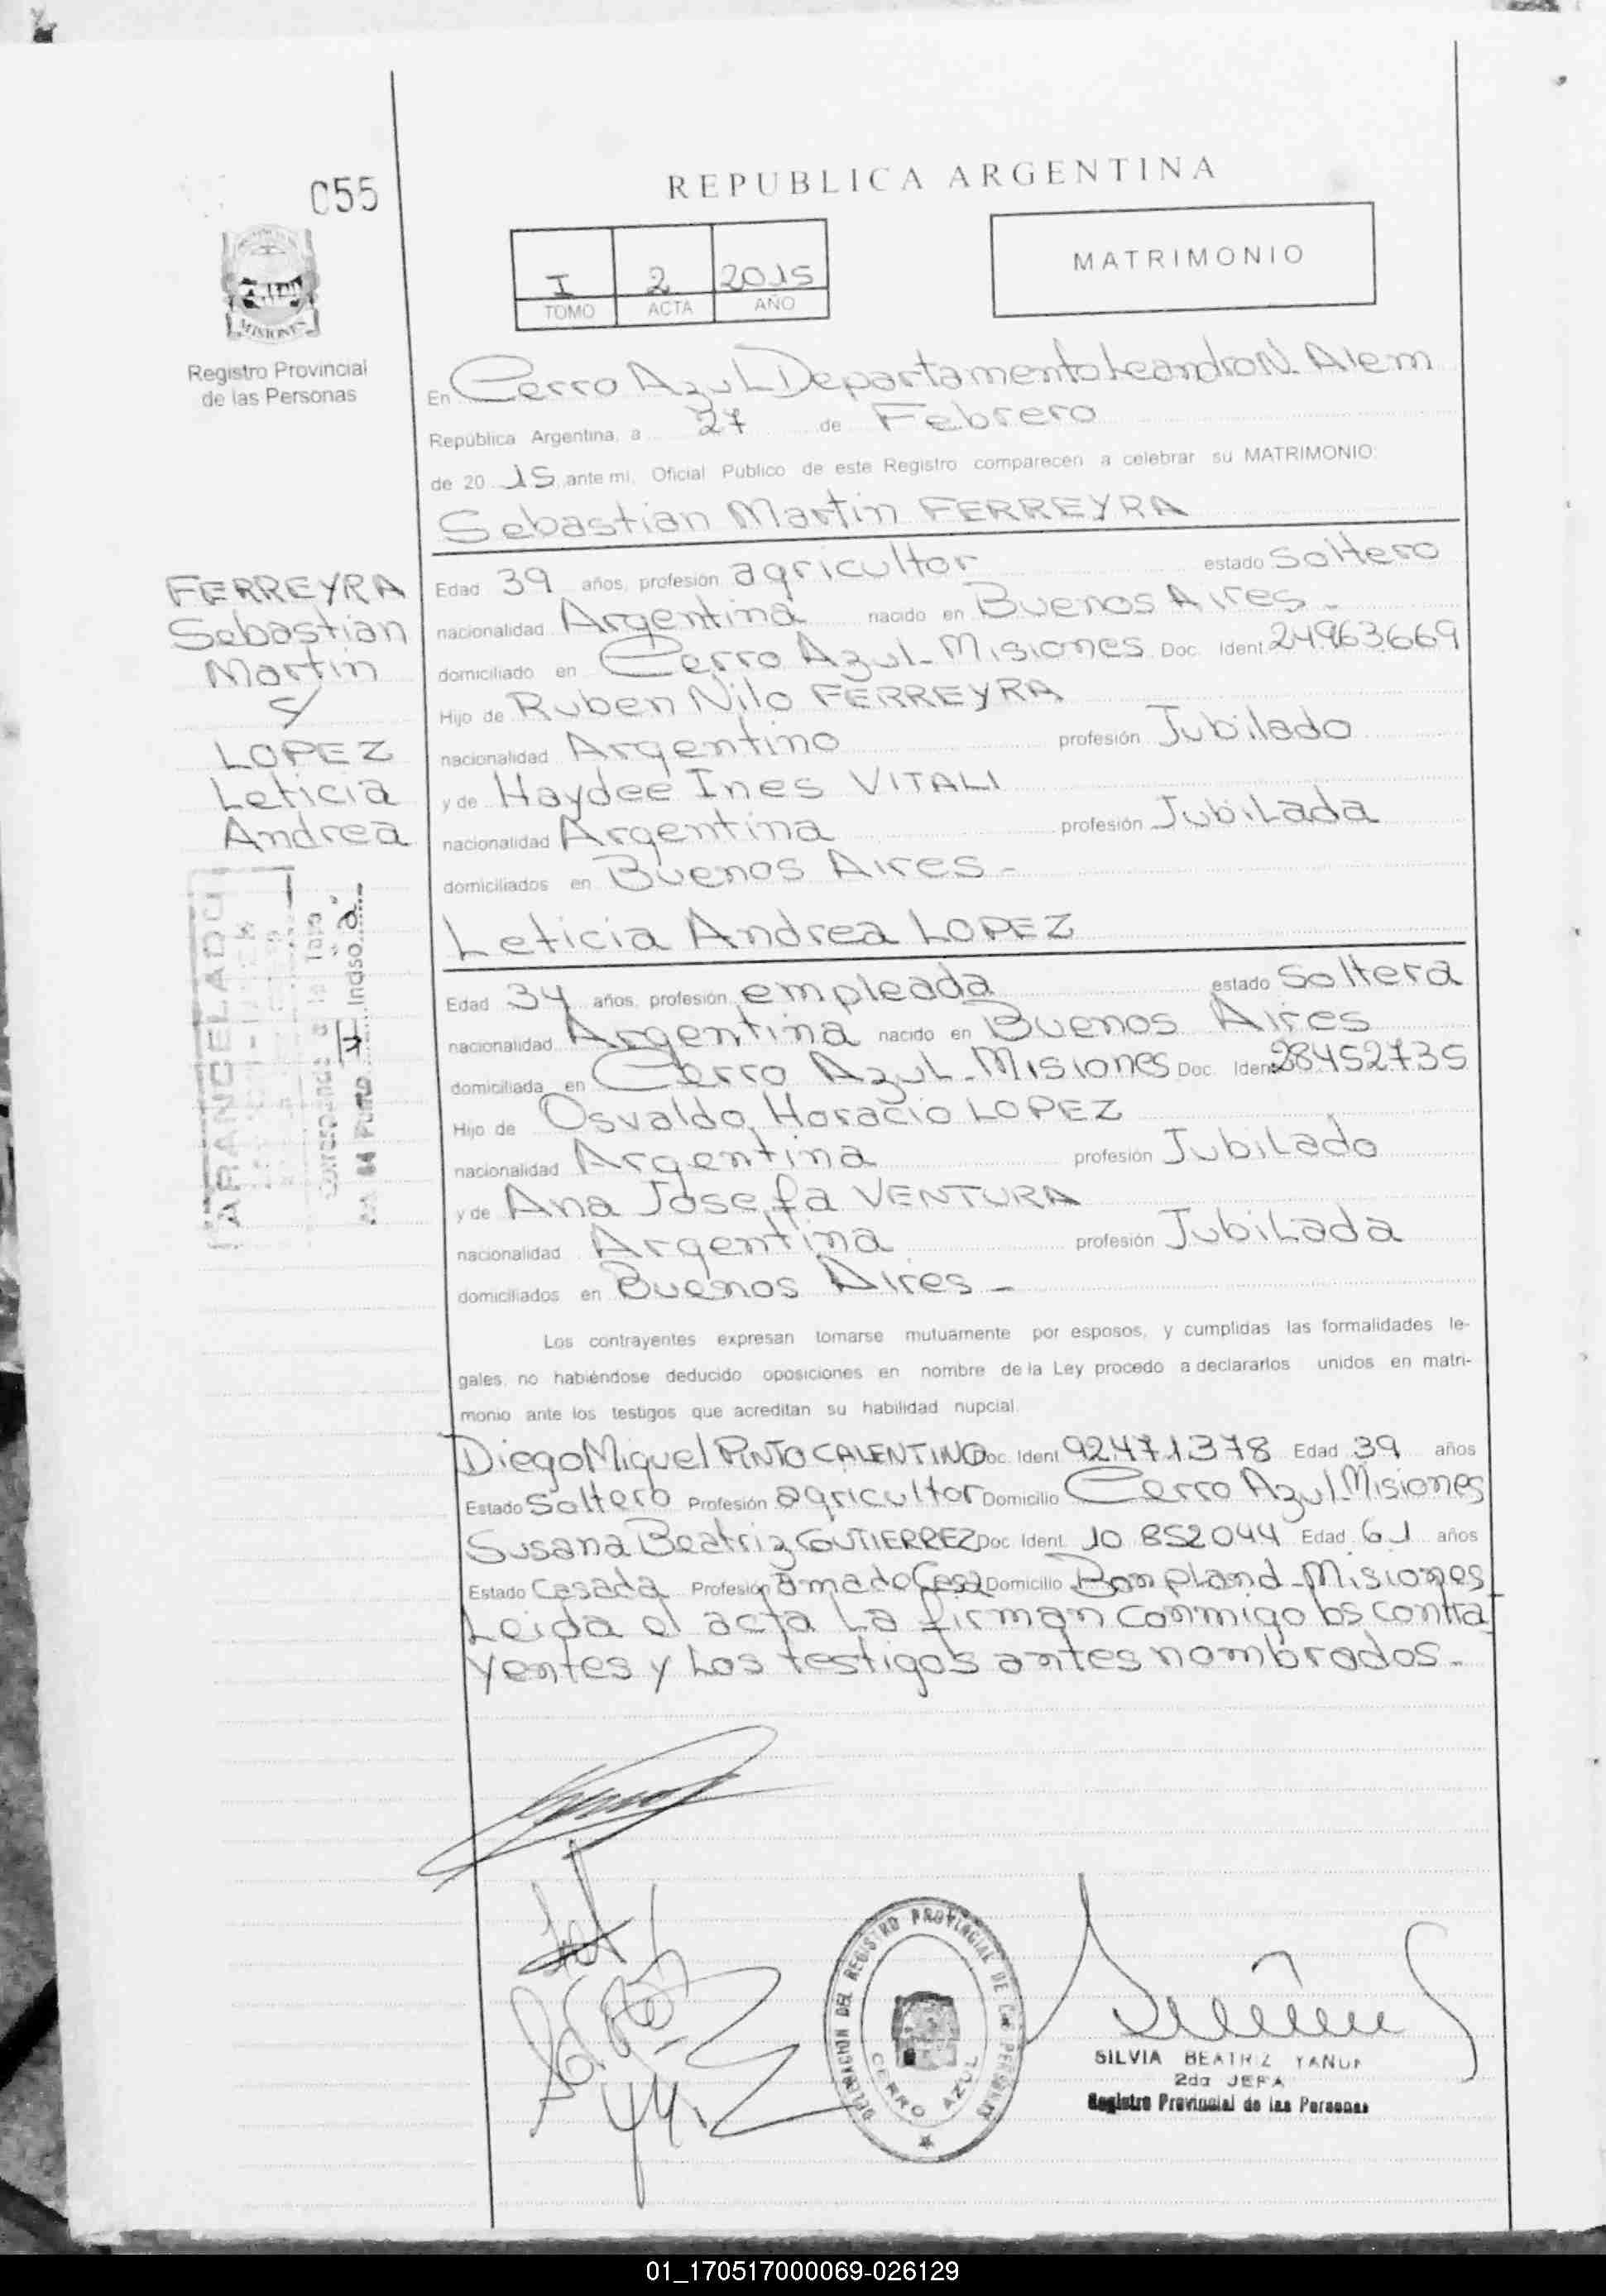 055
REPUBLICA ARGENTINA
I 2 2015
TOMO ACTA AÑO
MATRIMONIO
MISIONES
Registro Provincial
de las Personas
En Cerro Azul Departamento Leandro N. Alem
República Argentina, a 27 de Febrero
de 20 15 ante mi, Oficial Público de este Registro comparecen a celebrar su MATRIMONIO:
Sebastian Martin FERREYRA
FERREYRA
Sebastian
Martin
y
LOPEZ
Leticia
Andrea
Edad 39 años, profesión agricultor estado Soltero
nacionalidad Argentina nacido en Buenos Aires -
domiciliado en Cerro Azul - Misiones Doc. Ident. 24.963.669
Hijo de Ruben Nilo FERREYRA
nacionalidad Argentino profesión Jubilado
y de Haydee Ines VITALI
nacionalidad Argentina profesión Jubilada
domiciliados en Buenos Aires -
ARANCELADO
Inciso a
Leticia Andrea LOPEZ
Edad 34 años, profesión empleada estado Soltera
nacionalidad Argentina nacido en Buenos Aires
domiciliada en Cerro Azul - Misiones Doc. Ident 28.452.735
Hijo de Osvaldo Horacio LOPEZ
nacionalidad Argentina profesión Jubilado
y de Ana Josefa VENTURA
nacionalidad Argentina profesión Jubilada
domiciliados en Buenos Aires -
Los contrayentes expresan tomarse mutuamente por esposos, y cumplidas las formalidades le-
gales, no habiéndose deducido oposiciones en nombre de la Ley procedo a declararlos unidos en matri-
monio ante los testigos que acreditan su habilidad nupcial.
Diego Miguel PINTO CALENTINO Doc. Ident. 92.471.378 Edad 39 años
Estado Soltero Profesión agricultor Domicilio Cerro Azul - Misiones
Susana Beatriz GUTIERREZ Doc. Ident. 10 852044 Edad 61 años
Estado Casada Profesión amadeCasa Domicilio Bonpland - Misiones
Leida el acta la firman conmigo los contra
yentes y los testigos antes nombrados -
DELEGACION DEL REGISTRO PROVINCIAL DE LAS PERSONAS
CERRO AZUL
SILVIA BEATRIZ
2da JEFA
Registro Provincial de las Personas
01_170517000069-026129